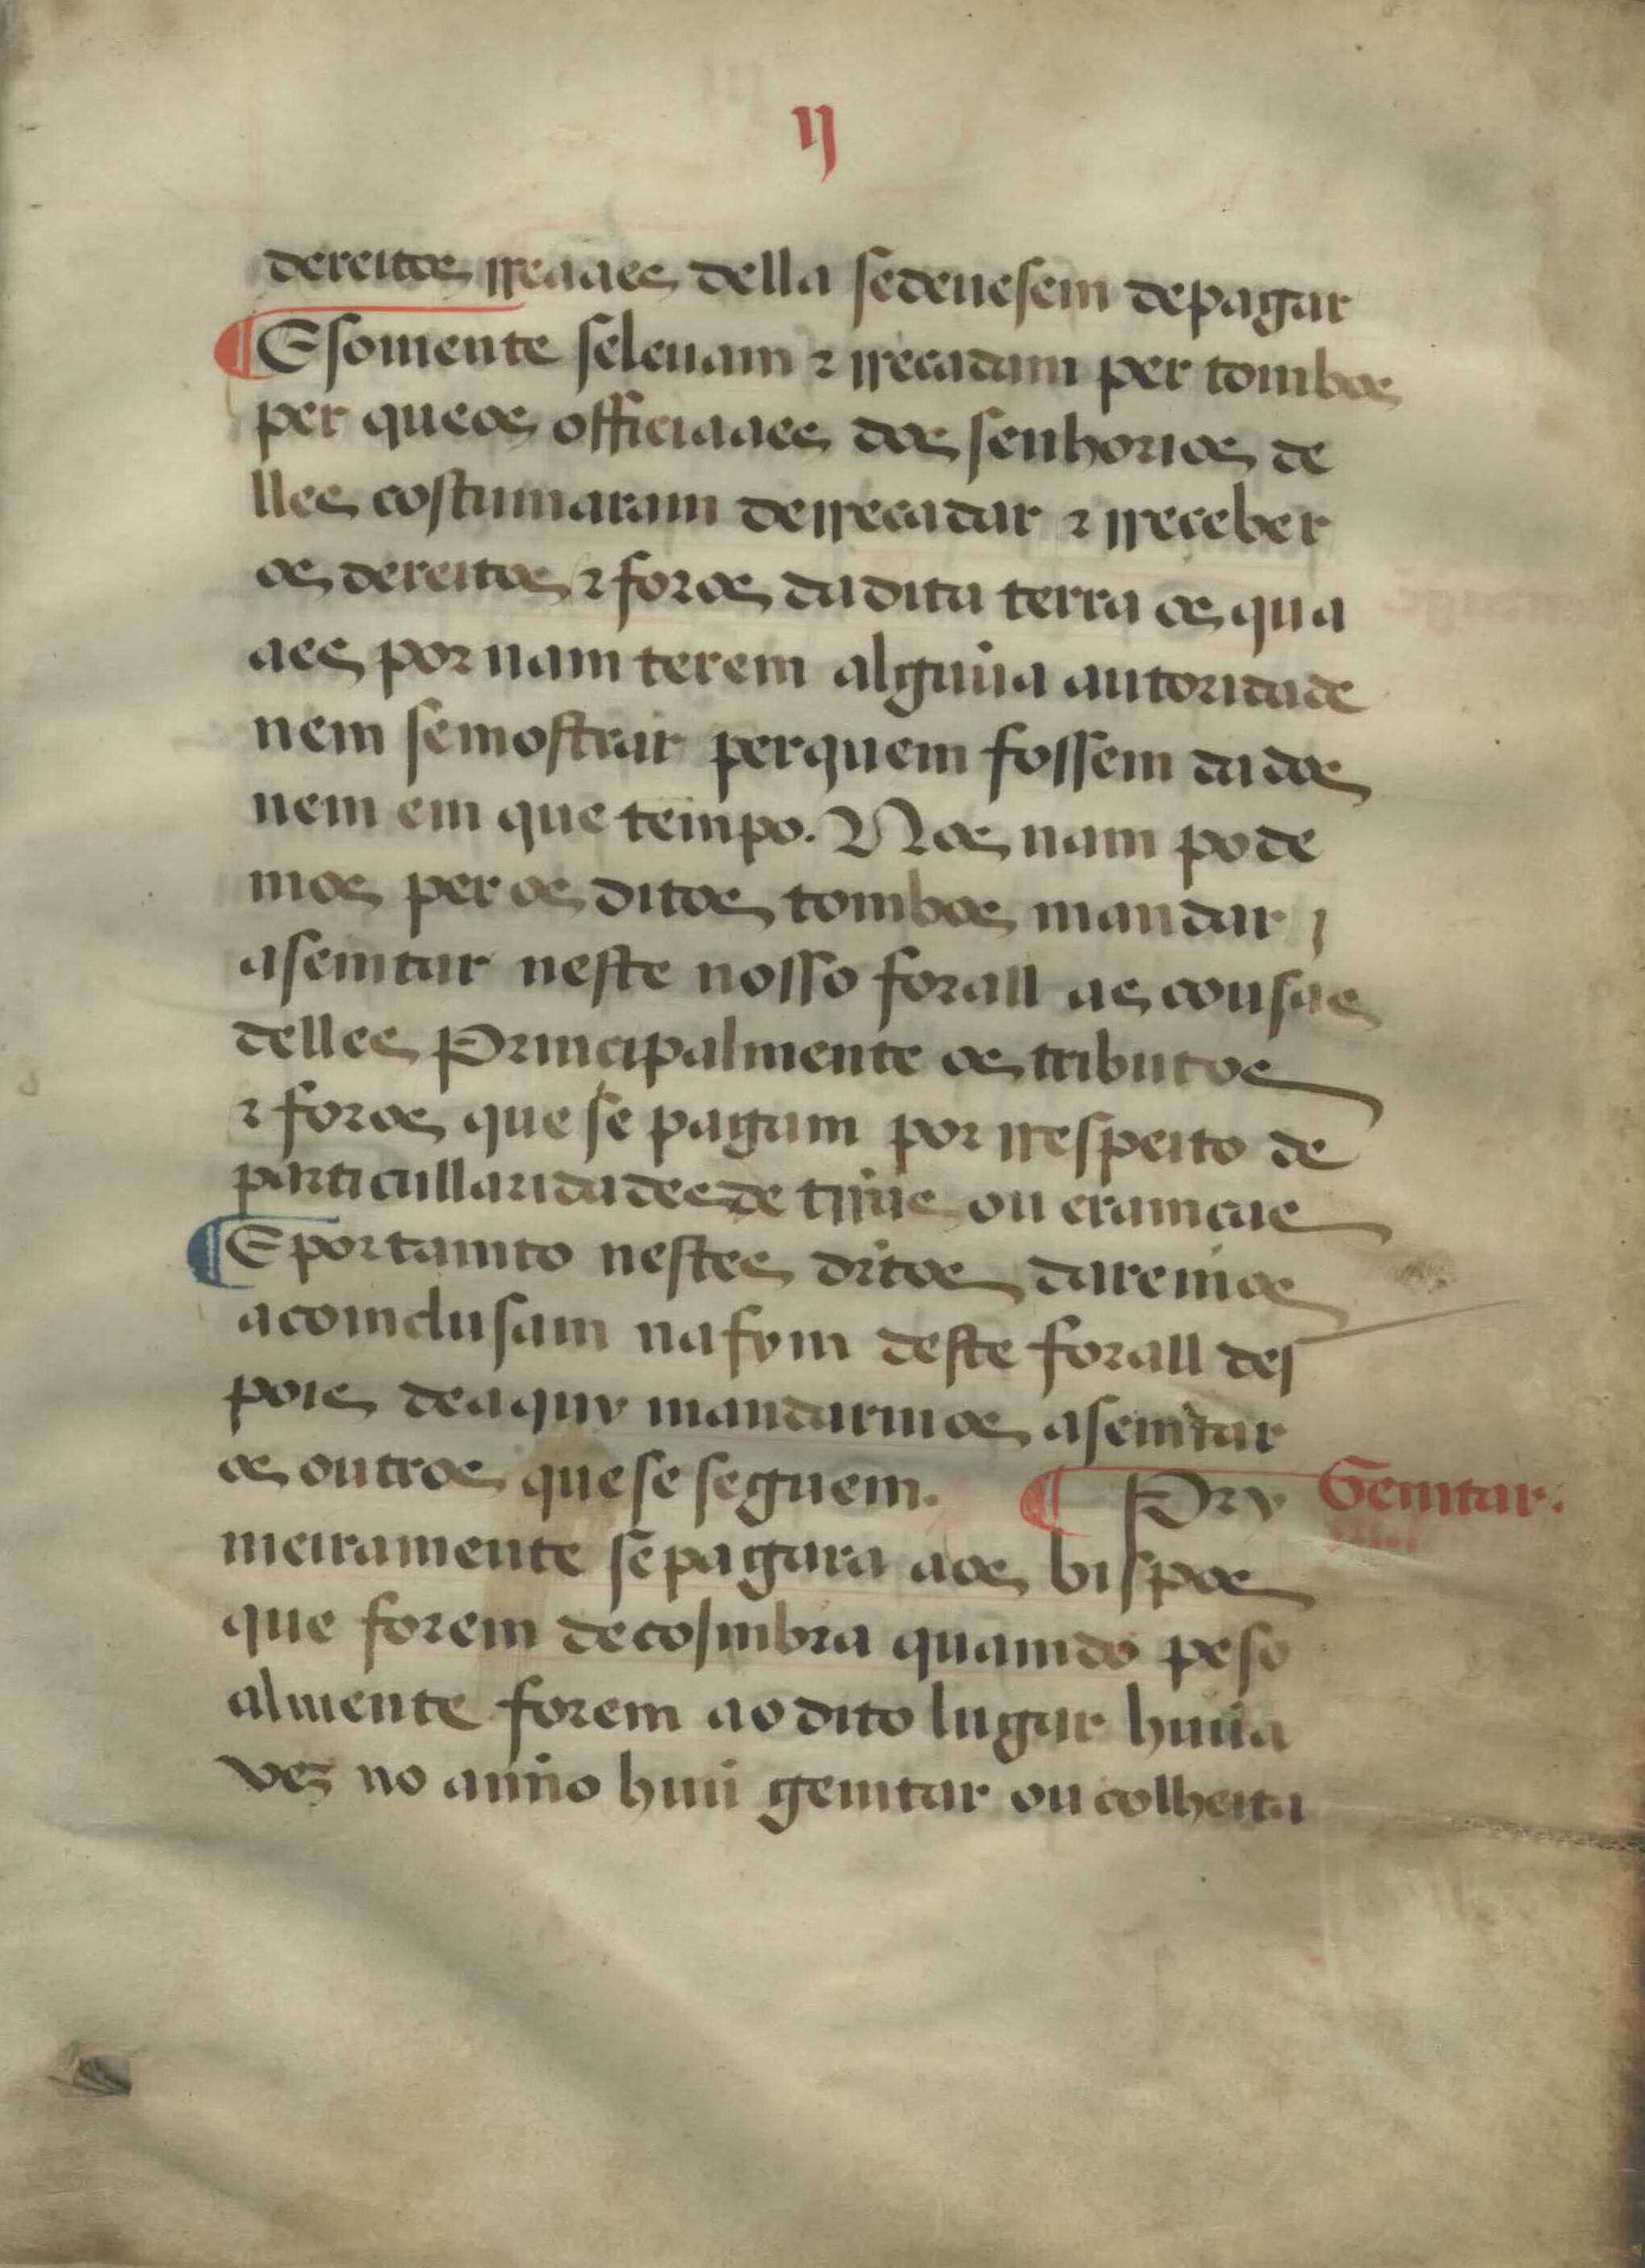 ij
dereitos rreaaes della se deuesem de pagar
¶ E somente se leuam ⁊ rrecadam per tombos
per que os officiaaes dos senhorios de
lles costumaram de rrecadar ⁊ rreceber
os dereitos ⁊ foros da dita terra os qua
aes por nam terem alguũa autoridade
nem se mostrar per quem fossem dados
nem em que tempo. Nos nam pode
mos per os ditos tombos mandar
asemtar neste nosso forall as cousas
delles Principalmente os tributos
⁊ foros que se pagam por rrespeito de
particullaridades de tirras ou eramças
¶ E portamto nestes ditos daremos
a comclusam na fym deste forall des
pois de aquy mandarmos asemtar
os outros que se seguem. ¶ Pry
Gemtar.
meiramente se pagara aos bispos
que forem de cojmbra quamdo peso
almente forem ao dito lugar huũa
vez no anño huũ gemtar ou colheita